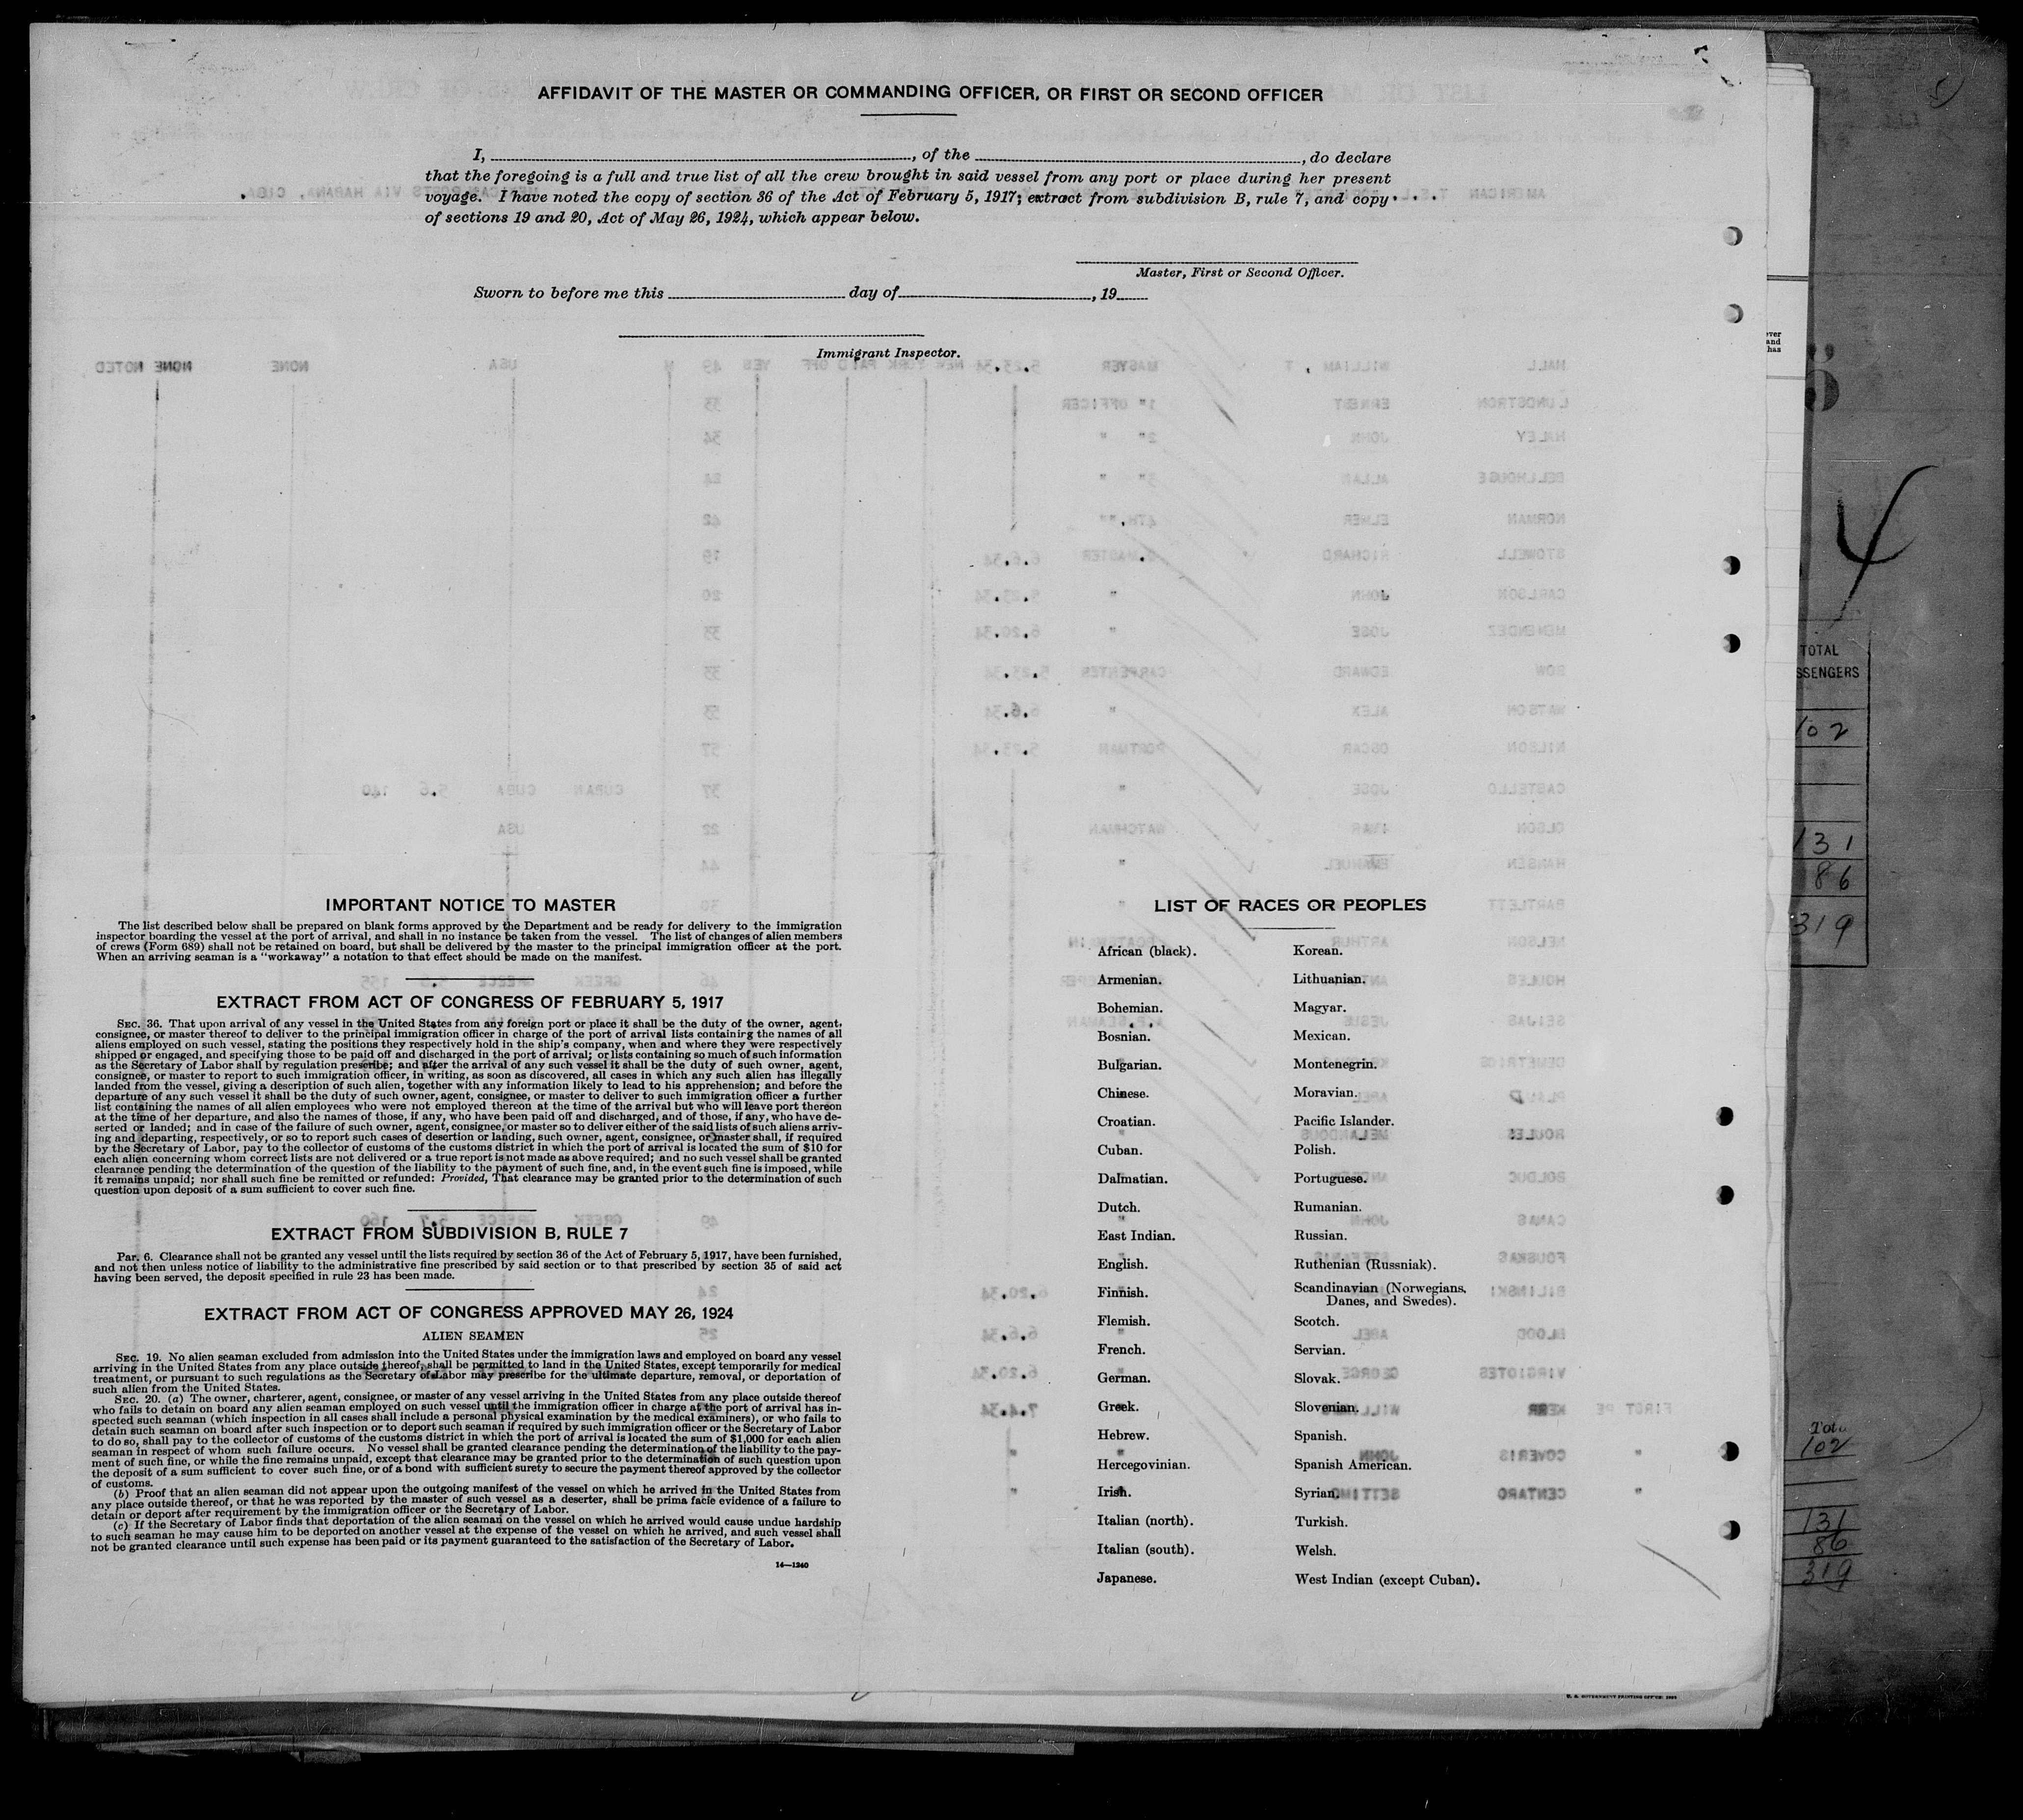 AFFIDAVIT OF THE MASTER OR COMMANDING OFFICER, OR FIRST OR SECOND OFFICER
I, , of the , do declare
that the foregoing is a full and true list of all the crew brought in said vessel from any port or place during her present
voyage. I have noted the copy of section 36 of the Act of February 5, 1917; extract from subdivision B, rule 7, and copy
of sections 19 and 20, Act of May 26, 1924, which appear below.
Master, First or Second Officer.
Sworn to before me this day of , 19
Immigrant Inspector.
IMPORTANT NOTICE TO MASTER
The list described below shall be prepared on blank forms approved by the Department and be ready for delivery to the immigration
inspector boarding the vessel at the port of arrival, and shall in no instance be taken from the vessel. The list of changes of alien members
of crews (Form 689) shall not be retained on board, but shall be delivered by the master to the principal immigration officer at the port.
When an arriving seaman is a "workaway" a notation to that effect should be made on the manifest.
EXTRACT FROM ACT OF CONGRESS OF FEBRUARY 5, 1917
SEC. 36. That upon arrival of any vessel in the United States from any foreign port or place it shall be the duty of the owner, agent,
consignee, or master thereof to deliver to the principal immigration officer in charge of the port of arrival lists containing the names of all
aliens employed on such vessel, stating the positions they respectively hold in the ship's company, when and where they were respectively
shipped or engaged, and specifying those to be paid off and discharged in the port of arrival; or lists containing so much of such information
as the Secretary of Labor shall by regulation prescribe; and after the arrival of any such vessel it shall be the duty of such owner, agent,
consignee, or master to report to such immigration officer, in writing, as soon as discovered, all cases in which any such alien has illegally
landed from the vessel, giving a description of such alien, together with any information likely to lead to his apprehension; and before the
departure of any such vessel it shall be the duty of such owner, agent, consignee, or master to deliver to such immigration officer a further
list containing the names of all alien employees who were not employed thereon at the time of the arrival but who will leave port thereon
at the time of her departure, and also the names of those, if any, who have been paid off and discharged, and of those, if any, who have de-
serted or landed; and in case of the failure of such owner, agent, consignee, or master so to deliver either of the said lists of such aliens arriv-
ing and departing, respectively, or so to report such cases of desertion or landing, such owner, agent, consignee, or master shall, if required
by the Secretary of Labor, pay to the collector of customs of the customs district in which the port of arrival is located the sum of $10 for
each alien concerning whom correct lists are not delivered or a true report is not made as above required; and no such vessel shall be granted
clearance pending the determination of the question of the liability to the payment of such fine, and, in the event such fine is imposed, while
it remains unpaid; nor shall such fine be remitted or refunded: Provided, That clearance may be granted prior to the determination of such
question upon deposit of a sum sufficient to cover such fine.
EXTRACT FROM SUBDIVISION B, RULE 7
Par. 6. Clearance shall not be granted any vessel until the lists required by section 36 of the Act of February 5, 1917, have been furnished,
and not then unless notice of liability to the administrative fine prescribed by said section or to that prescribed by section 35 of said act
having been served, the deposit specified in rule 23 has been made.
EXTRACT FROM ACT OF CONGRESS APPROVED MAY 26, 1924
ALIEN SEAMEN
SEC. 19. No alien seaman excluded from admission into the United States under the immigration laws and employed on board any vessel
arriving in the United States from any place outside thereof, shall be permitted to land in the United States, except temporarily for medical
treatment, or pursuant to such regulations as the Secretary of Labor may prescribe for the ultimate departure, removal, or deportation of
such alien from the United States.
SEC. 20. (a) The owner, charterer, agent, consignee, or master of any vessel arriving in the United States from any place outside thereof
who fails to detain on board any alien seaman employed on such vessel until the immigration officer in charge at the port of arrival has in-
spected such seaman (which inspection in all cases shall include a personal physical examination by the medical examiners), or who fails to
detain such seaman on board after such inspection or to deport such seaman if required by such immigration officer or the Secretary of Labor
to do so, shall pay to the collector of customs of the customs district in which the port of arrival is located the sum of $1,000 for each alien
seaman in respect of whom such failure occurs. No vessel shall be granted clearance pending the determination of the liability to the pay-
ment of such fine, or while the fine remains unpaid, except that clearance may be granted prior to the determination of such question upon
the deposit of a sum sufficient to cover such fine, or of a bond with sufficient surety to secure the payment thereof approved by the collector
of customs.
(b) Proof that an alien seaman did not appear upon the outgoing manifest of the vessel on which he arrived in the United States from
any place outside thereof, or that he was reported by the master of such vessel as a deserter, shall be prima facie evidence of a failure to
detain or deport after requirement by the immigration officer or the Secretary of Labor.
(c) If the Secretary of Labor finds that deportation of the alien seaman on the vessel on which he arrived would cause undue hardship
to such seaman he may cause him to be deported on another vessel at the expense of the vessel on which he arrived, and such vessel shall
not be granted clearance until such expense has been paid or its payment guaranteed to the satisfaction of the Secretary of Labor.
14—1240
LIST OF RACES OR PEOPLES
African (black).
Armenian.
Bohemian.
Bosnian.
Bulgarian.
Chinese.
Croatian.
Cuban.
Dalmatian.
Dutch.
East Indian.
English.
Finnish.
Flemish.
French.
German.
Greek.
Hebrew.
Hercegovinian.
Irish.
Italian (north).
Italian (south).
Japanese.
Korean.
Lithuanian.
Magyar.
Mexican.
Montenegrin.
Moravian.
Pacific Islander.
Polish.
Portuguese.
Rumanian.
Russian.
Ruthenian (Russniak).
Scandinavian (Norwegians,
Danes, and Swedes).
Scotch.
Servian.
Slovak.
Slovenian.
Spanish.
Spanish American.
Syrian.
Turkish.
Welsh.
West Indian (except Cuban).
4
TOTAL
SSENGERS
102
131
86
319
Total
102
131
86
319